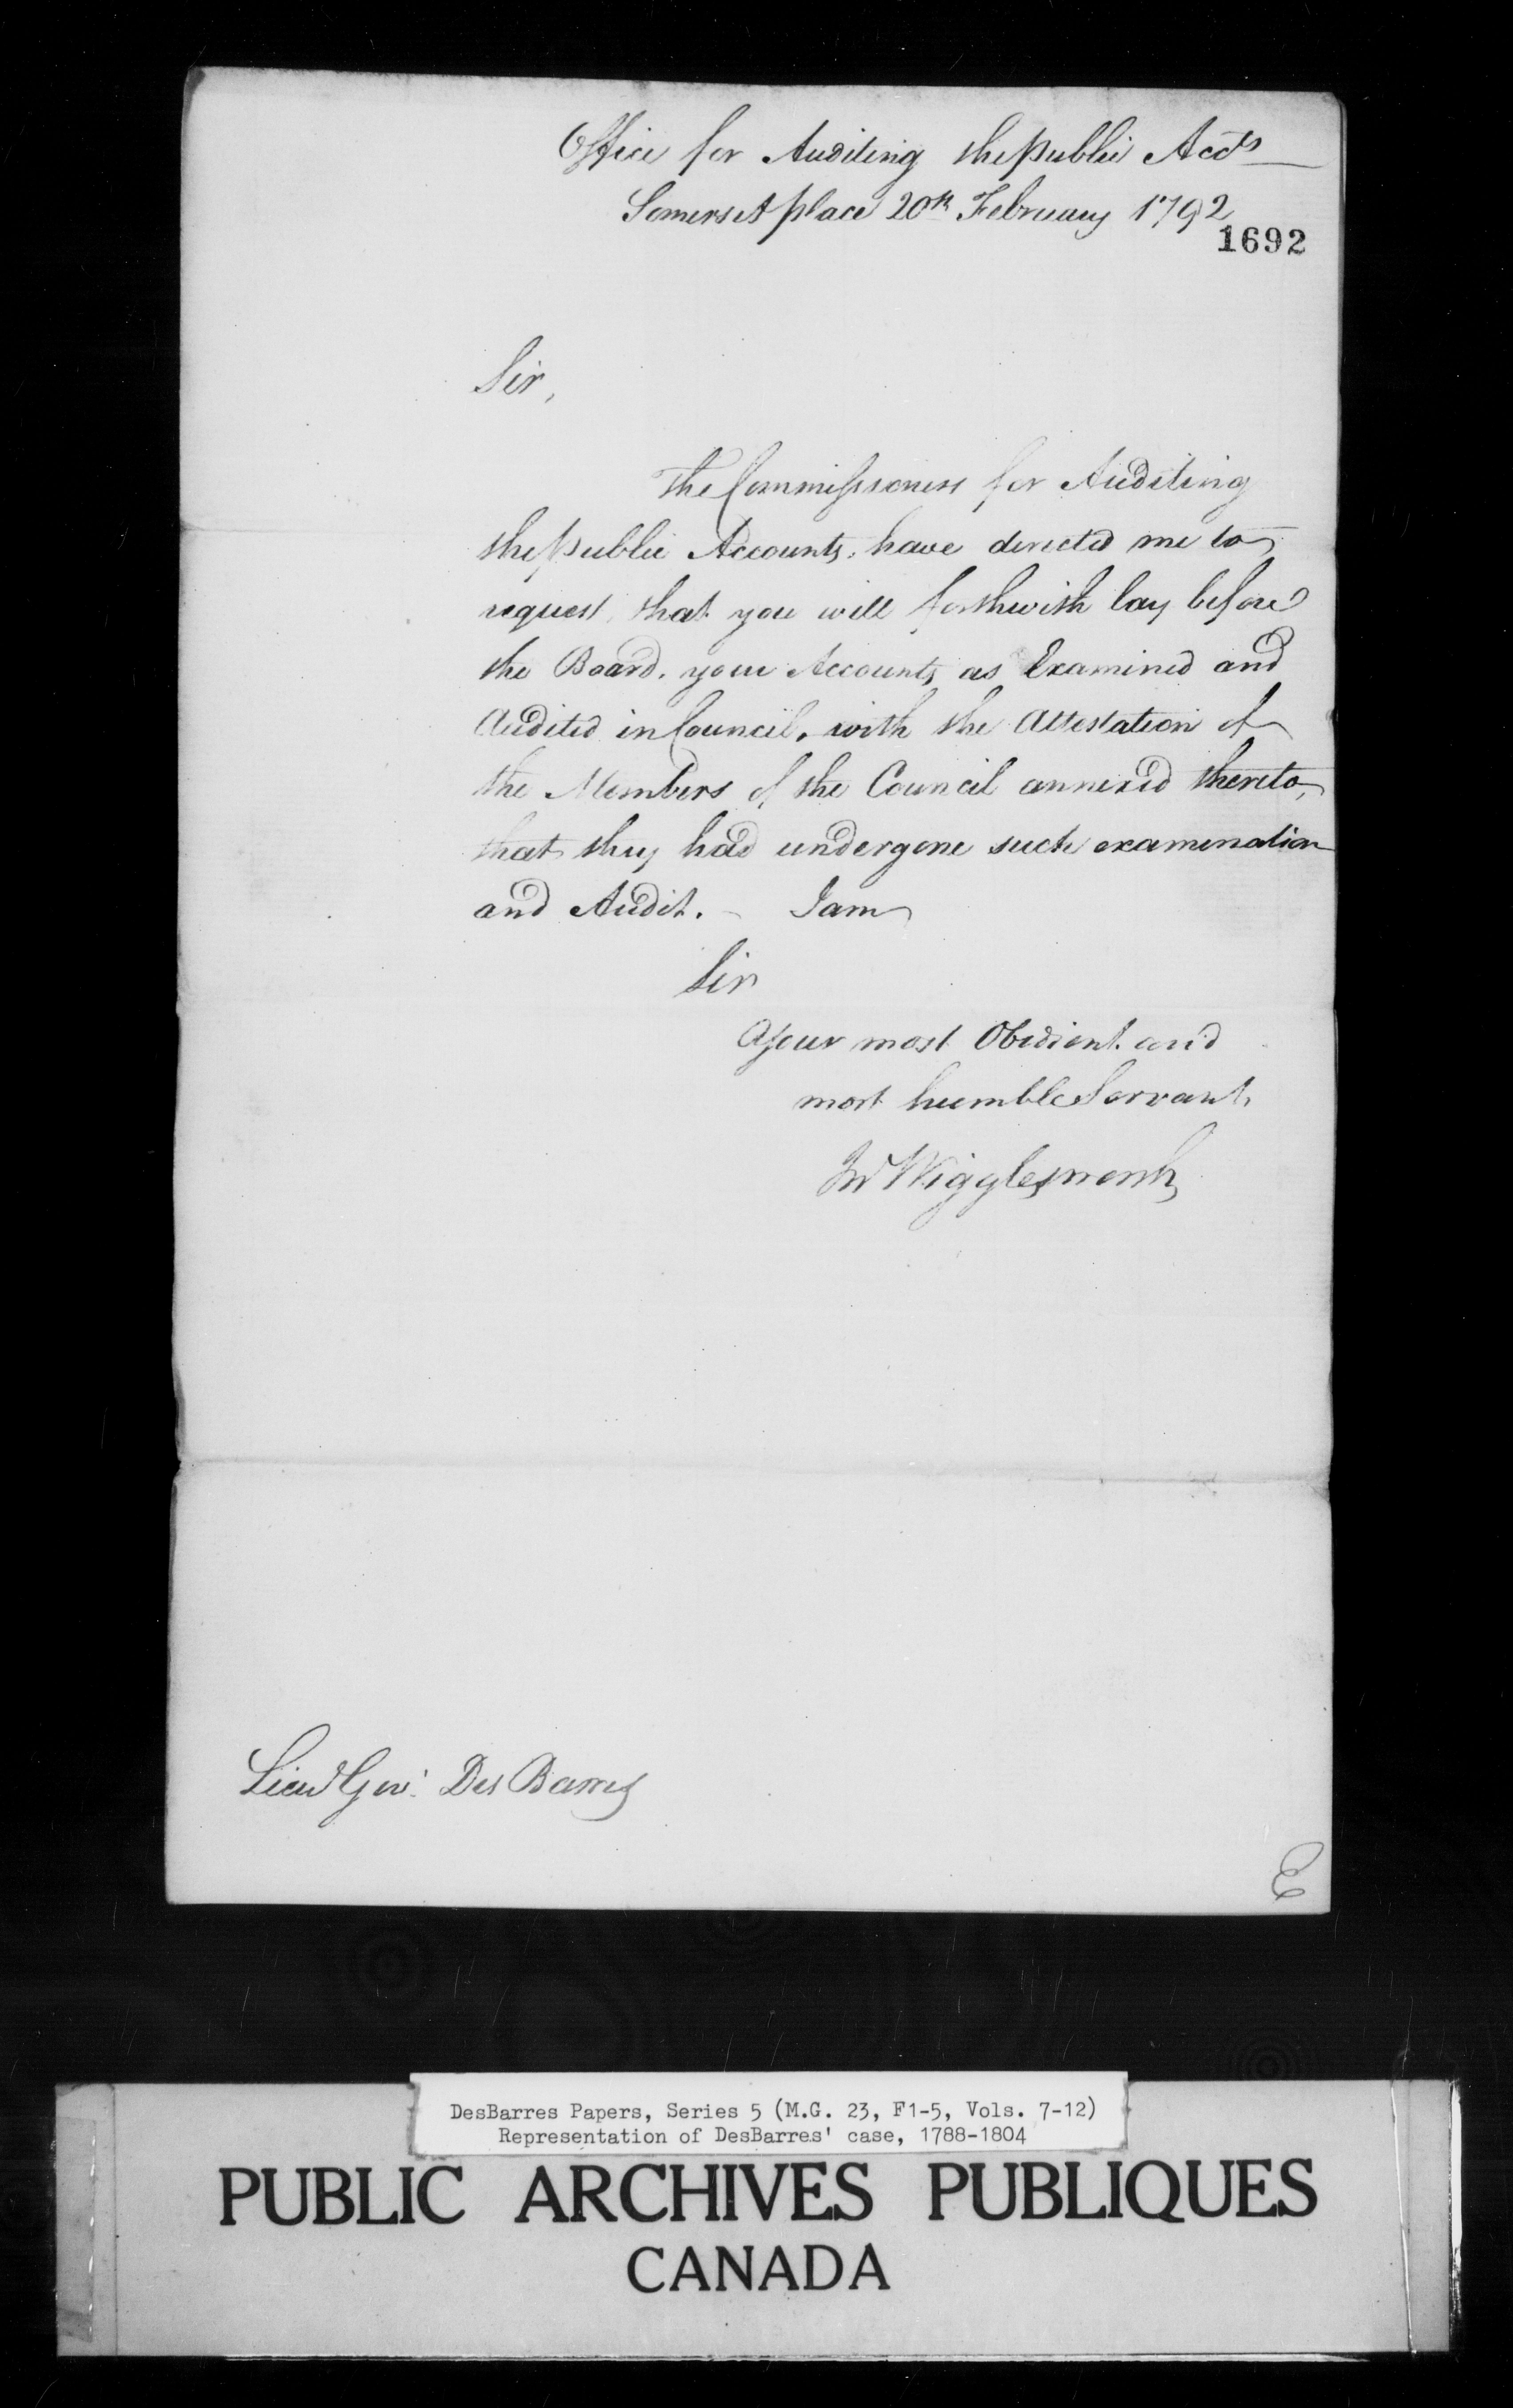 Office for Auditing the public Accts
Somerset place 20th February 1792
1692
Sir,
The Commissioners for Auditing
the public Accounts, have directed me to
request, that you will forthwith lay before
the Board, your Accounts as Examined and
Audited in Council, with the Attestation of
the Members of the Council annexed thereto,
that they had undergone such examination
and Audit. – I am
Sir
Your most Obedient and
most humble Servant,
Jno Wigglesworth
Lieut Govr Des Barres
E
DesBarres Papers, Series 5 (M.G. 23, F1-5, Vols. 7-12)
Representation of DesBarres' case, 1788-1804
PUBLIC ARCHIVES PUBLIQUES
CANADA